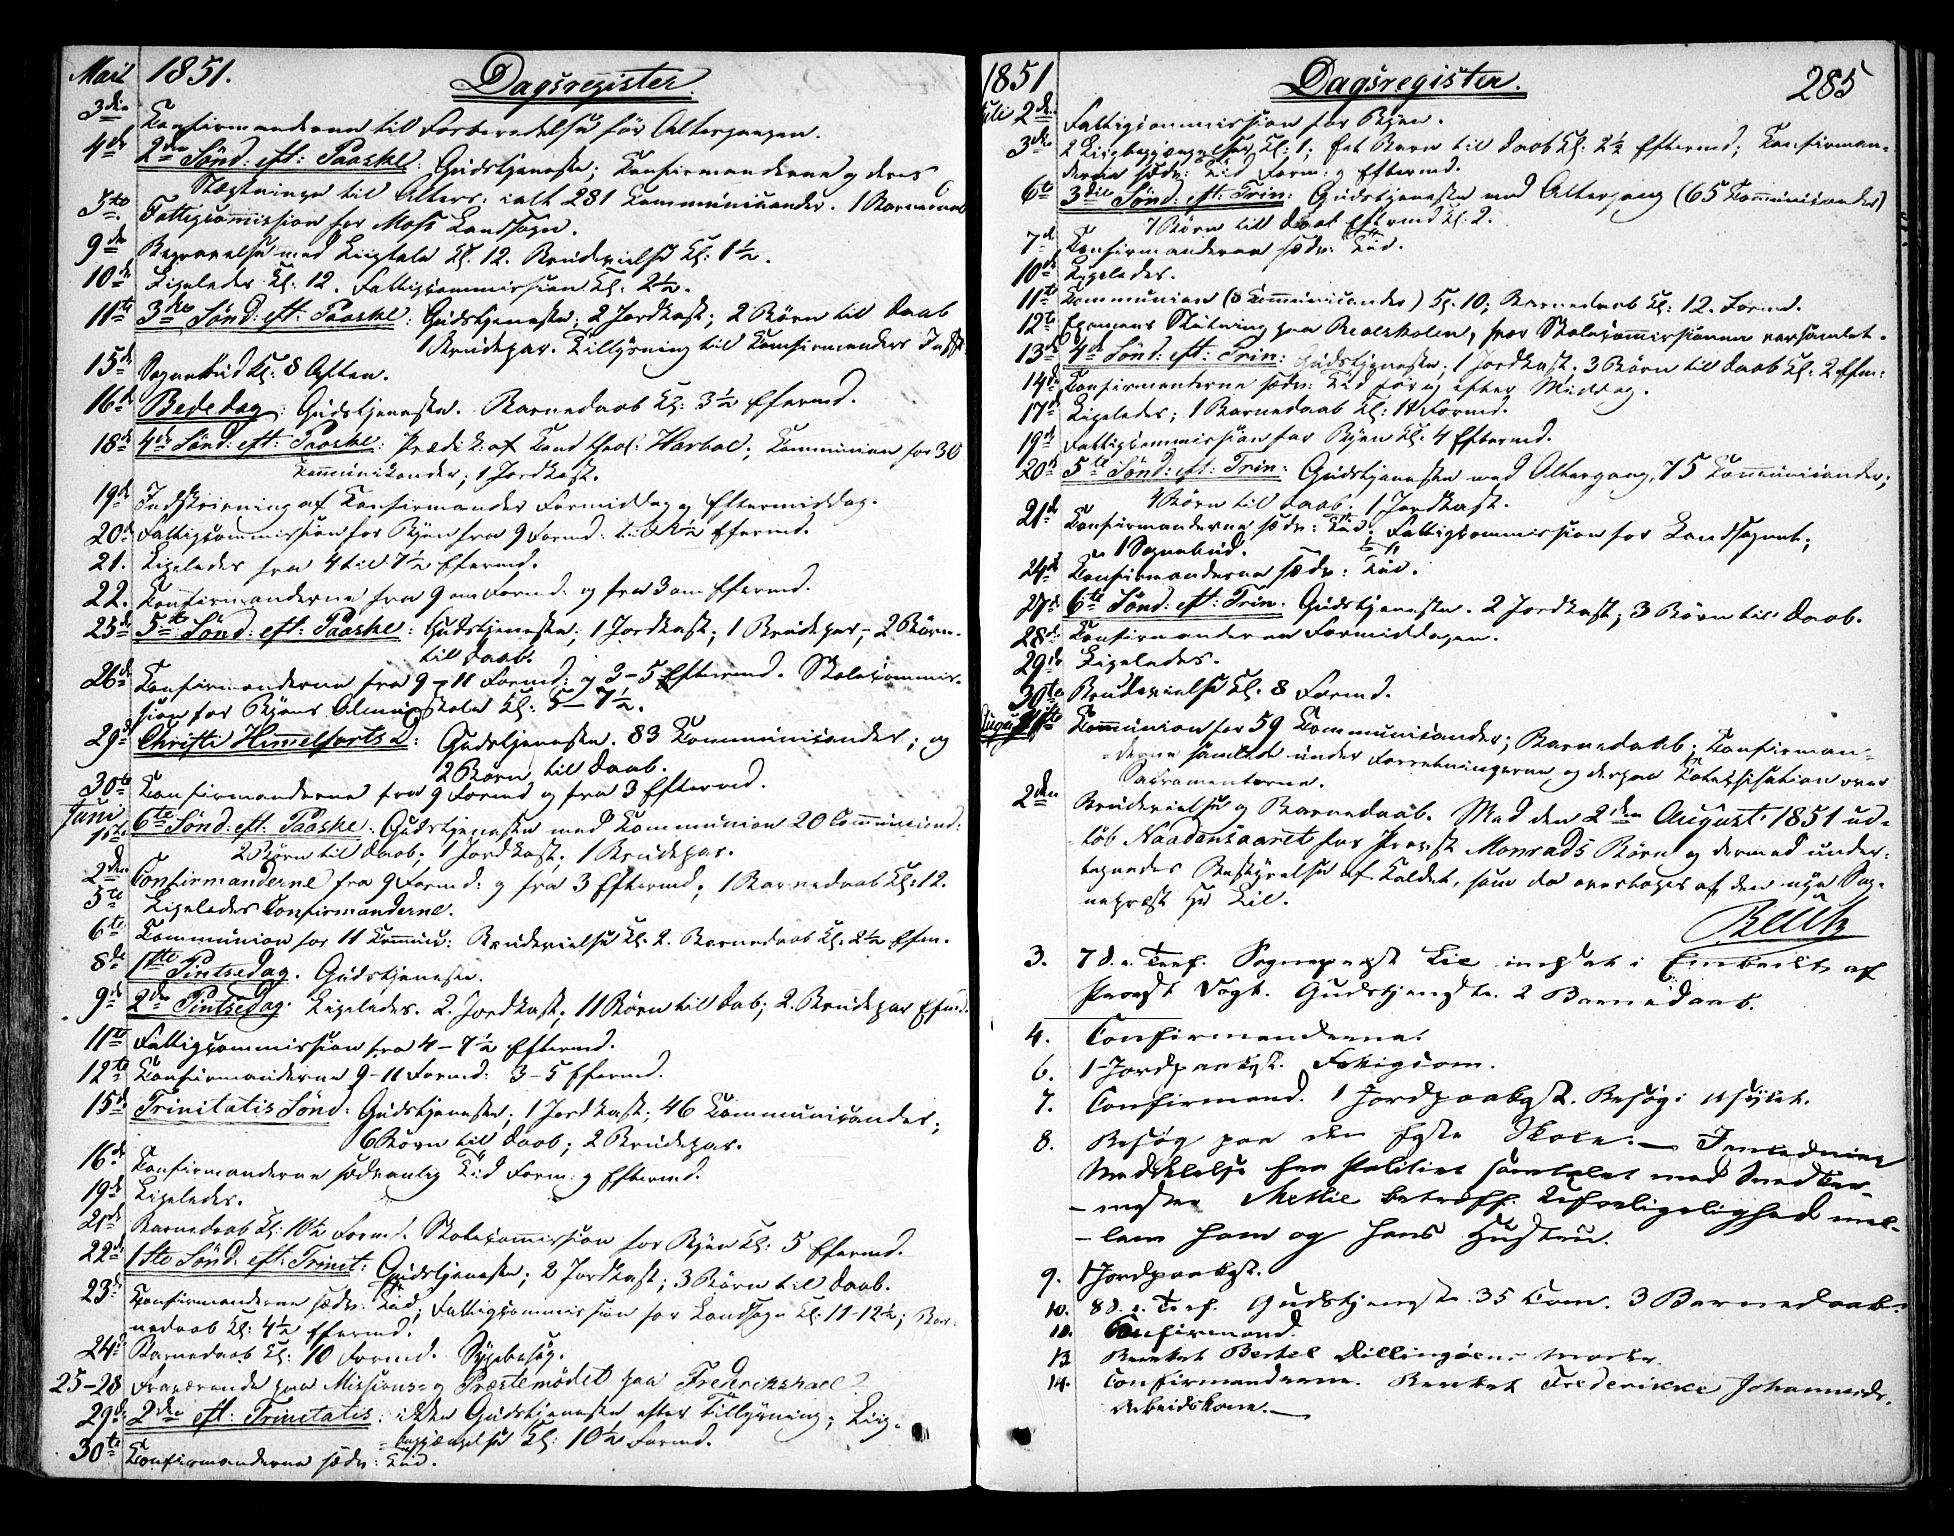 Mai 1851. Dagsregister.
3die Konfirmanderne til Forberedelse før Altergangen.
4de 2den Sønd: eft: Paaske: Gudstjeneste; Konfirmanderne og deres
Slægtninge til Alters: ialt 281 Kommunicander. 1 Barnedaab
5te Fattigcommission for Moss Landsogn.
9de Begravelse med Liigtale Kl. 12. Brudevielse Kl: 1½.
10de Ligeledes Kl: 12. Fattigcommission Kl: 2½.
11te 3die Sønd: eft: Paaske: Gudstjeneste; 2 Jordkast; 2 Børn til Daab
1 Brudepar. Tillysning til Confirmanders
15de Sognebud Kl: 8 Aften.
16de Bededag: Gudstjeneste. Barnedaab Kl: 3½ Efermd.
18de 4de Sønd: eft: Paaske: Prædik: af Cand theol: Harboe. Communion for 30
Communikander; 1 Jordkast.
19de Indskrivning af Konfirmander Formiddag og Eftermiddag.
20de Fattigcommission for Byen fra 9 Formd: til Efermd.
21. Ligeledes fra 4 til 7½ Efermd.
22. Konfirmanderne fra 9 Formd: og fra 3 Efermd.
25de 5te Sønd: eft: Paaske: Gudstjeneste; 1 Jordkast; 1 Brudepar; 2 Børn
til Daab.
26de Konfirmanderne fra 9–11 Formd: og 3–5 Eftermd. Skolecommis-
sion for Byens Almueskole Kl: 5–7½.
29de Christi Himmelfarts D: Gudstjeneste. 83 Kommunicander; og
2 Børn til Daab.
30te Konfirmanderne fra 9 Formd og fra 3 Eftermd.
Juni
1ste 6te Sønd: eft: Paaske: Gudstjeneste med Kommunion 20 Communicand:
2 Børn til Daab; 1 Jordkast; 1 Brudepar.
2den Confirmanderne fra 9 Formd: og fra 3 Eftermd; 1 Barnedaab Kl: 12.
5te Ligeledes Confirmanderne.
6te Kommunion for 11 Commun: Brudevielse Kl. 2. Barnedaab Kl. 2½ Efm.
8de 1ste Pintsedag. Gudstjeneste.
9de 2den Pintsedag. Ligeledes. 2. Jordkast; 11 Børn til Dab; 2. Brudepar Efmd.
11te Fattigcommission fra 4–7½ Eftermd.
12te Konfirmanderne 9–11 Formd: 3–5 Efermd.
15de Trinitatis Sønd: Gudstjeneste; 1 Jordkast; 46 Kommunicander;
6 Børn til Daab; 2 Brudepar.
16de Konfirmanderne sædvanlig Tid Form: og Eftermd.
19de Ligeledes.
21de Barnedaab Kl: 10½ Formd. Skolecommission for Byen Kl: 5 Efermd.
22de 1ste Sønd: eft: Trinit: Gudstjeneste; 2 Jordkast; 3 Børn til Daab.
23de Konfirmanderne sædv: Tid; Fattigcommission for Landsogn Kl: 11–12½; Bar-
nedaab Kl: 4½ Efermd.
24de Barnedaab Kl: 10 Formd. Sygebesøg.
25–28 Fraværende paa Missions- og Præstemødet paa Frederikshald.
29de 2den eft: Trinitatis: ikke Gudstjeneste efter Tillysning; Liig-
begjængelse Kl: 10½ Formd.
30te Konfirmanderne sædv: Tid.
1851 Dagsregister. 285
Juli 2den Fattigcommission for Byen.
3die 2 Liigbegjængelser Kl: 1; Eet Barn til Daab Kl: 2½ Eftermd; Konfirman-
derne sædv: Tid Form: og Eftermd.
6te 3die Sønd: eft: Trin: Gudstjeneste med Altergang (65 Communicander)
7 Børn til Daab Eftermd Kl: 2.
7de Konfirmanderne sædv: Tid.
10de Ligeledes.
11te Communion (8 Communicander) Kl. 10; Barnedaab Kl: 12. Formd.
12te Examens Slutning paa Realskolen, hvor Skolecommissionen var samlet.
13de 4de Sønd: eft: Trin: Gudstjeneste; 1 Jordkast. 3 Børn til Daab Kl: 2 Efm:
14de Konfirmanderne sædv: Tid før og efter Middag.
17de Ligeledes; 1 Barnedaab Kl: 11 Formd.
19de Fattigcommission for Byen Kl. 4 Eftermd.
20de 5te Sønd: eft: Trin: Gudstjeneste med Altergang, 75 Communicander;
4 Børn til Daab; 1 Jordkast.
21de Konfirmanderne sædv: Tid; Fattigcommission for Landsognet;
1 Sognebud.
24de Konfirmanderne sædv: Tid.
27de 6te Sønd: eft: Trin. Gudstjeneste. 2 Jordkast; 3 Børn til Daab.
28de Konfirmanderne Formiddagen.
29de Ligeledes.
30te Brudevielse Kl. 8 Formd.
August 1ste Kommunion for 59 Communicander; Barnedaab; Konfirman-
derne samlede under Forretningerne og derpaa Katechisation over
Sakramenterne.
2den Brudevielse og Barnedaab. Med den 2den August 1851 ud-
løb Naadensaaret for Provst Monrads Børn og dermed under-
tegnedes Bestyrelse af Kaldet, som da overtages af den nye Sog-
nepræst Hr Lie.
3. 7 S. e. Tref. Sognepræst Lie indsat i Embedet af
Provst Vogt. Gudstjeneste. 2 Barnedaab.
4. Confirmanderne.
6. 1 Jordpaakst. Fattigcom.
7. Confirmand. 1 Jordpaakst. Besøg i Asylet.
8. Besøg paa den Skole. —
Meddelelse fra Politiet samtalet med
mester Methie betræff. Uforligelighed mel-
lem ham og hans Hustru.
9. 1 Jordpaakst.
10. 8 S. e. Tref. Gudstjeneste. 35 Com. 3 Barnedaab.
Confirmand.
13 Berettet Bertel Dillingøens
14. Confirmanderne. Berettet Frederikke
Arbeidskone. —